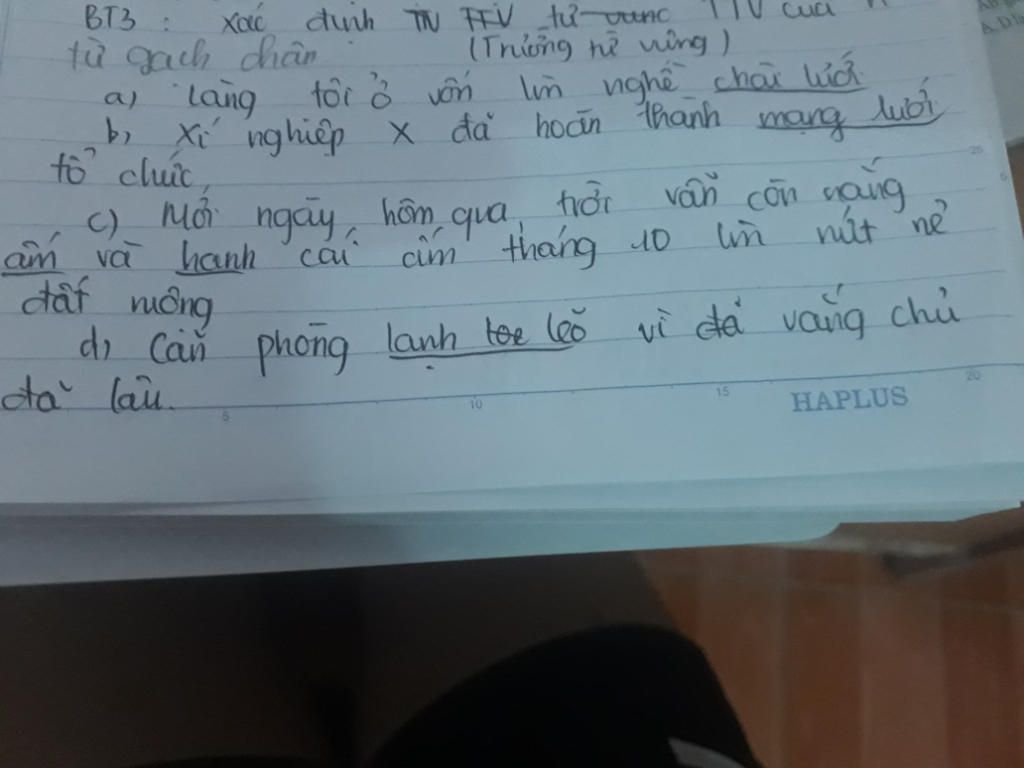 BT3 : xác định TTV từ vựng TTV của
từ gạch chân (Trường từ vựng)
a) làng tôi ở vốn làm nghề chài lưới
b, xí nghiệp x đã hoàn thành mạng lưới
tổ chức,
c) Mới ngày hôm qua, trời vẫn còn nắng
ấm và hanh cái cái tháng 10 làm nứt nẻ
đất ruộng
d, Căn phòng lạnh lẽo vì đã vắng chủ
đã lâu.
5 10 15 20
HAPLUS
25